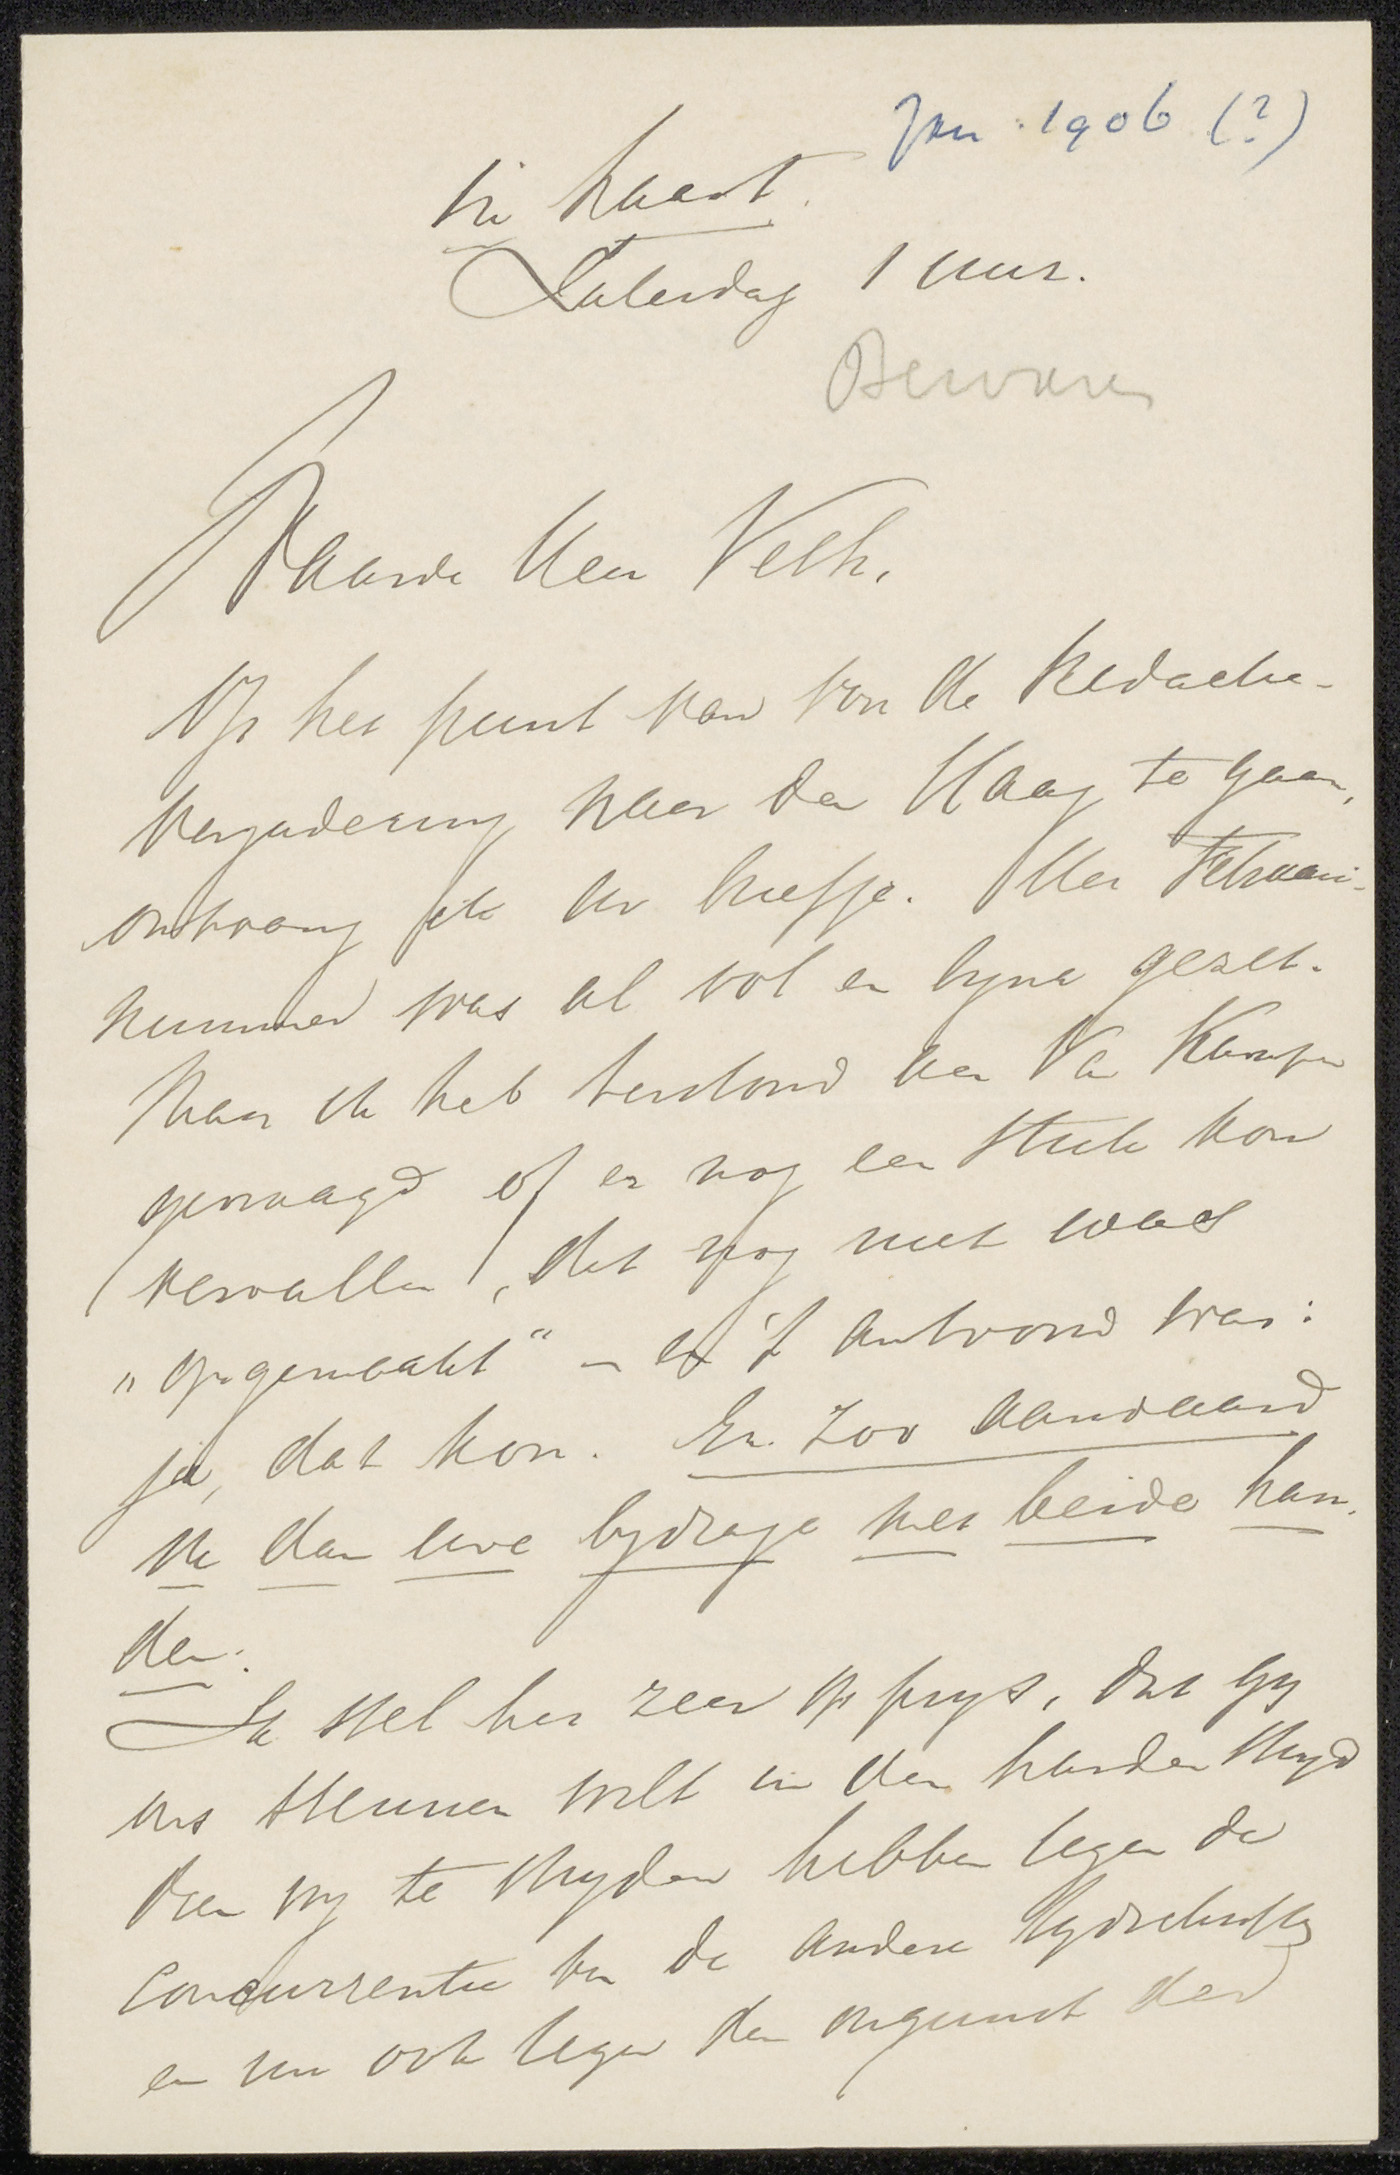 Jan. 1906 (?)
in haast.
Zaterdag 1 uur.
Bewaren
Waarde Heer Veth,
Op het punt van voor de Redactie-
vergadering naar den Haag te gaan,
ontvang ik Uw briefje. Het Februari-
nummer was al vol en byna gezet.
Maar ik heb terstond aan Van Kampen
gevraagd of er nog een stuk kon
vervallen, dat nog niet was
„opgemaakt" – en 't antwoord was:
ja, dat kon. En zoo aanvaard
ik dan uwe bydrage met beide han-
den.
Ik stel het zeer op prys, dat gy
ons steunen wilt in den harden stryd
dien wy te stryden hebben tegen de
concurrentie van de andere tydschriften
en nu ook tegen den ongunst der